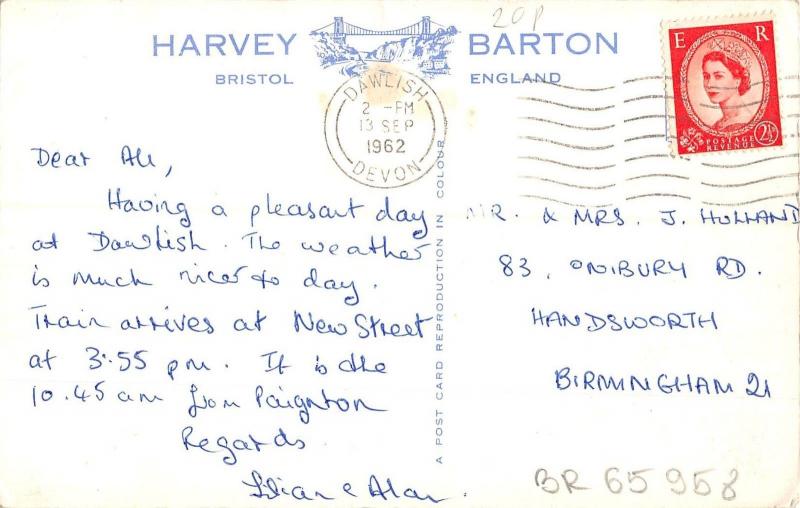 20p
HARVEY BARTON
BRISTOL ENGLAND
DAWLISH
2 - PM
13 SEP
1962
DEVON
E R
POSTAGE
REVENUE
2½
Dear All,
Having a pleasant day
at Dawlish. The weather
is much nicer to day.
Train arrives at New Street
at 3.55 pm. It is the
10.45 am from Paignton
Regards
& Alan.
A POST CARD REPRODUCTION IN COLOUR
MR. & MRS. J. HOLLAND
83, ONIBURY RD.
HANDSWORTH
BIRMINGHAM 21
BR 65958